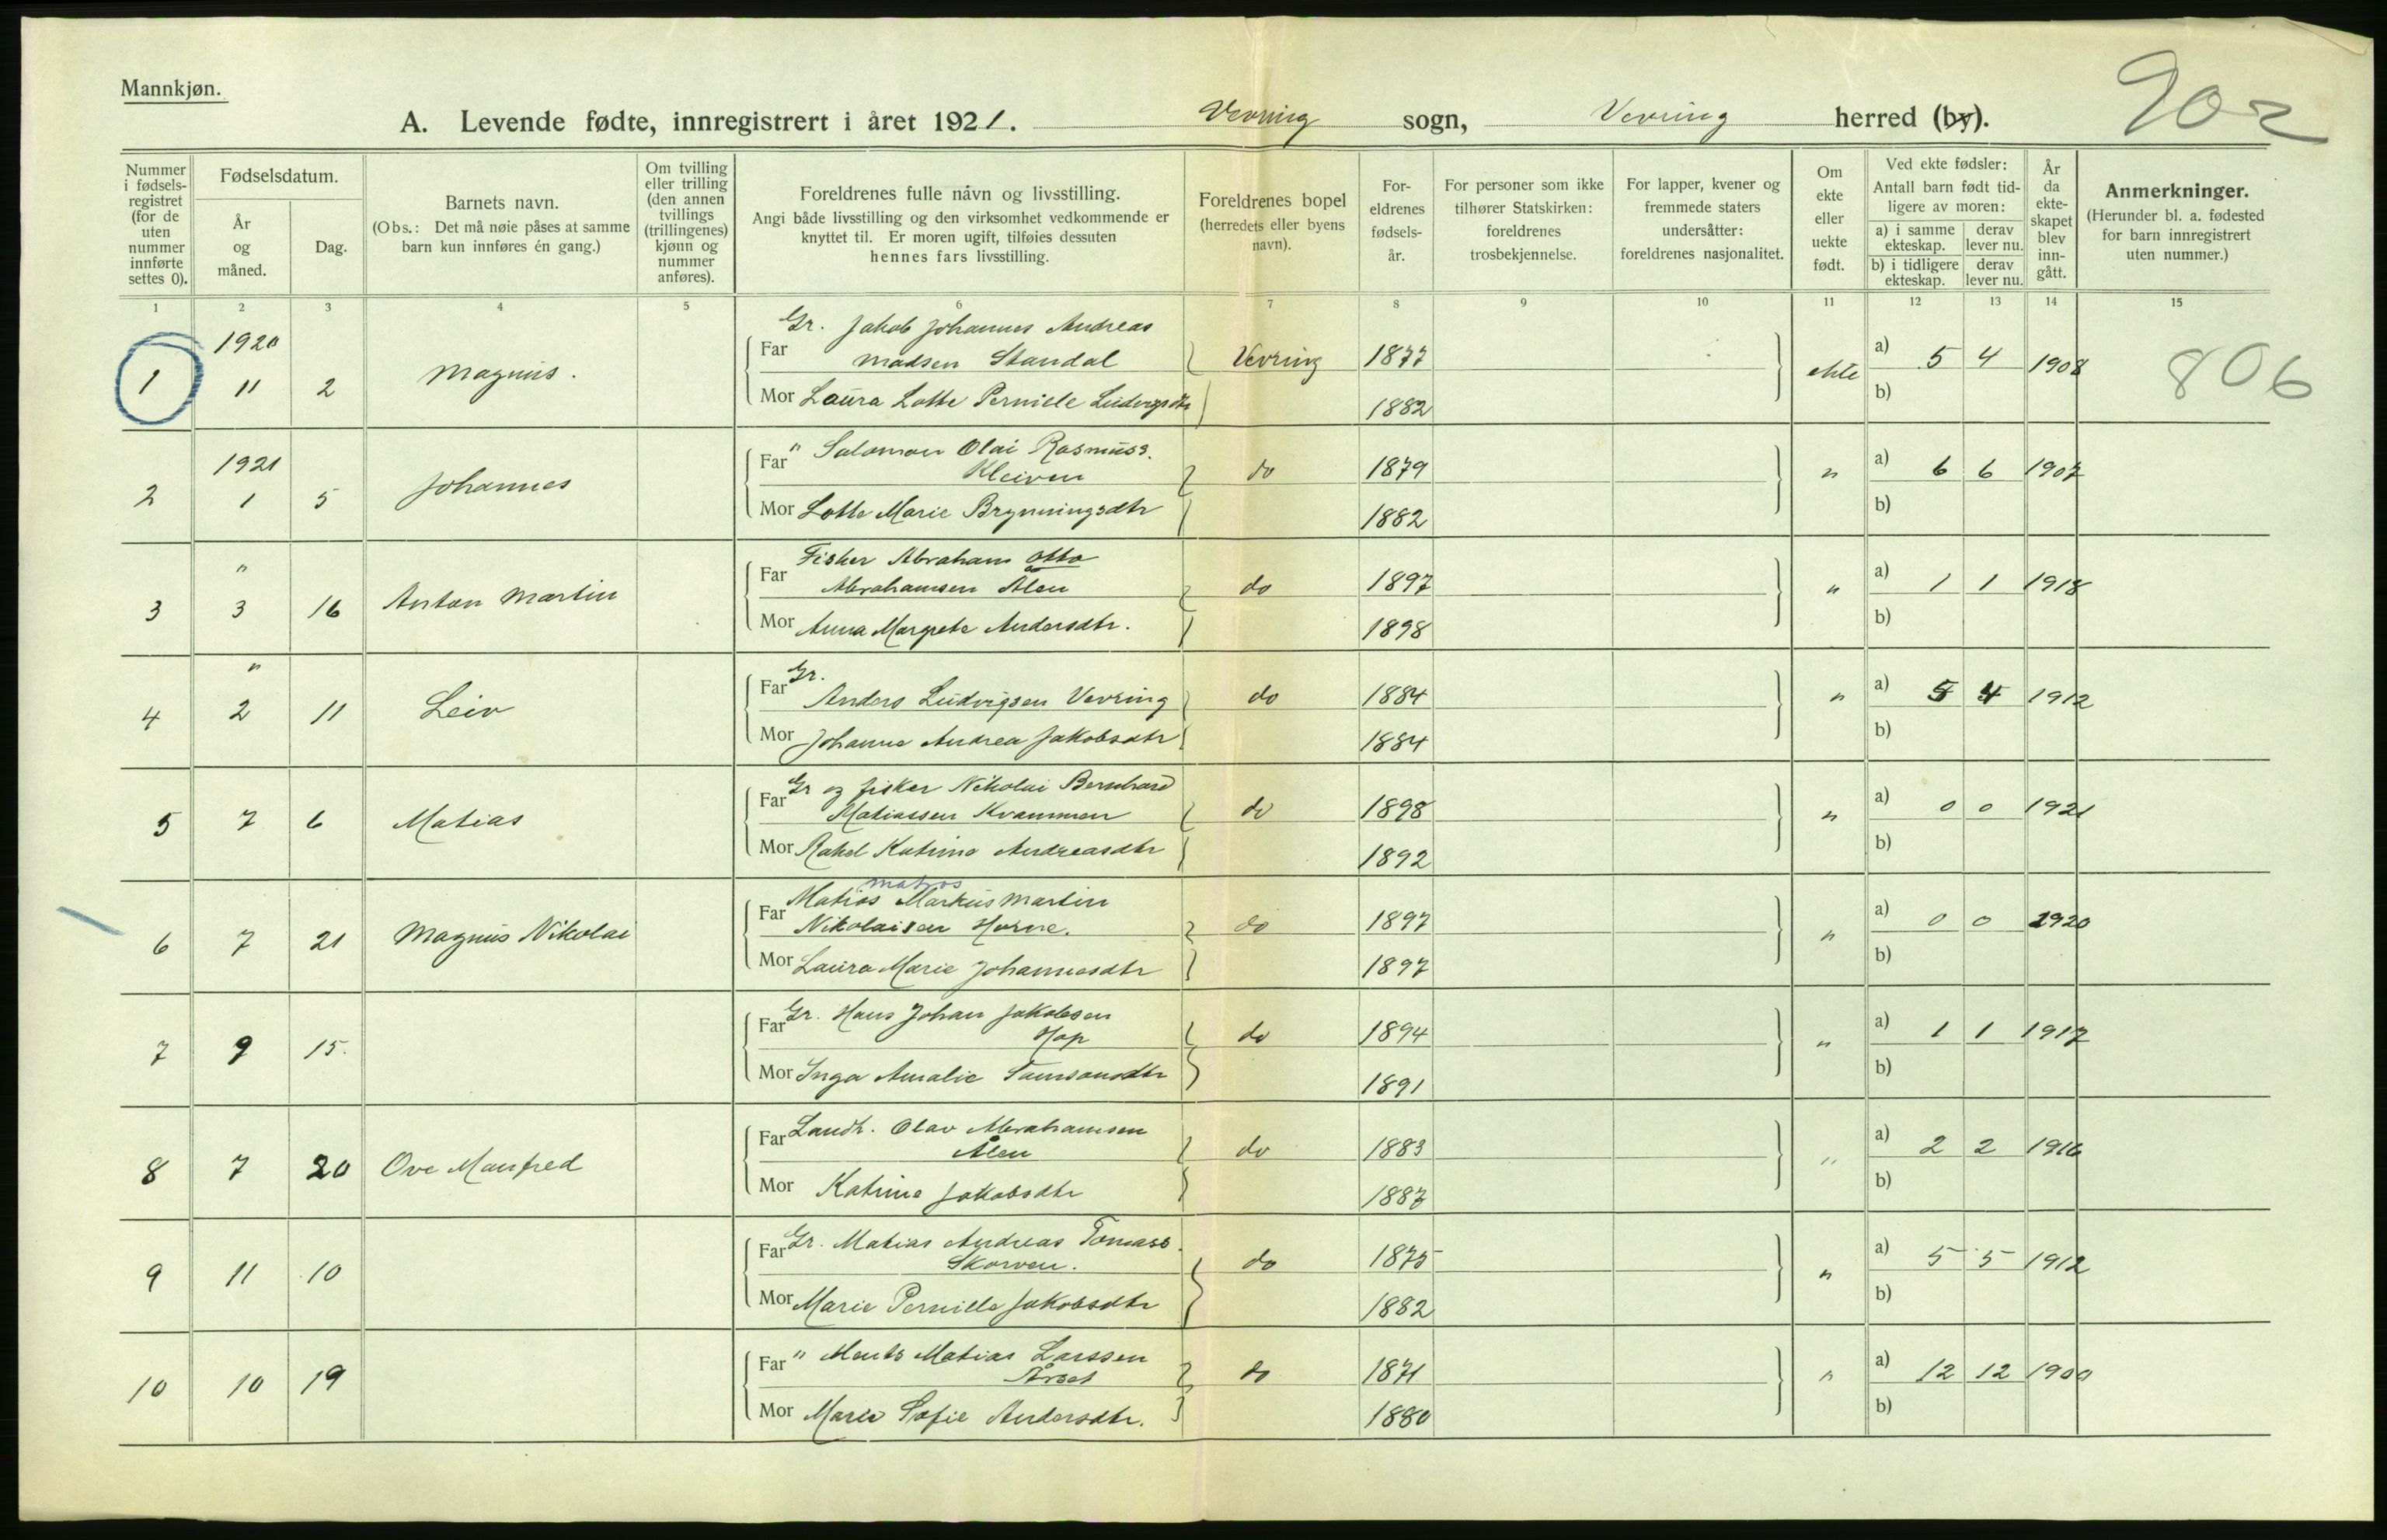 Mannkjøn.
A. Levende fødte, innregistrert i året 1921. Vevring sogn, Vevring herred (by).
902
Nummer i fødsels-registret (for de uten nummer innførte settes 0).
Fødselsdatum.
År og måned.
Dag.
Barnets navn.
(Obs.: Det må nøie påses at samme barn kun innføres én gang.)
Om tvilling eller trilling (den annen tvillings (trillingenes) kjønn og nummer anføres).
Foreldrenes fulle navn og livsstilling.
Angi både livsstilling og den virksomhet vedkommende er knyttet til. Er moren ugift, tilføies dessuten hennes fars livsstilling.
Foreldrenes bopel (herredets eller byens navn).
For-eldrenes fødsels-år.
For personer som ikke tilhører Statskirken: foreldrenes trosbekjennelse.
For lapper, kvener og fremmede staters undersåtter: foreldrenes nasjonalitet.
Om ekte eller uekte født.
Ved ekte fødsler:
Antall barn født tid-ligere av moren:
a) i samme ekteskap. derav lever nu.
b) i tidligere ekteskap. derav lever nu.
År da ekte-skapet blev inn-gått.
Anmerkninger.
(Herunder bl. a. fødested for barn innregistrert uten nummer.)
1 2 3 4 5 6 7 8 9 10 11 12 13 14 15
1920
Gr. Jakob Johannes Andreas
1 11 2 Magnus. Far Madsen Standal Vevring 1877 ekte a) 5 4 1908 806
Mor Laura Lotte Pernille Ludvigsdtr 1882 b)
1921
2 1 5 Johannes Far " Salomon Olai Rasmuss.
Kleiven do 1879 " a) 6 6 1907
Mor Lotte Marie Brynningsdtr 1882 b)
"
3 3 16 Anton Martin Far Fisker Abraham Otto
Abrahamsen Ålen do 1897 " a) 1 1 1918
Mor Anna Margrete Andersdtr. 1898 b)
"
4 2 11 Leiv Far Gr.
Anders Ludvigsen Vevring do 1884 " a) 5 4 1912
Mor Johanna Andrea Jakobsdtr 1884 b)
5 7 6 Matias Far Gr og fisker Nikolai Bernhard
Matiassen Kvammen do 1898 " a) 0 0 1921
Mor Rakel Katrine Andreasdtr 1892 b)
matros
6 7 21 Magnus Nikolai Far Matias Markus Martin
Nikolaisen Horne. do 1897 " a) 0 0 1920
Mor Laura Marie Johannesdtr 1897 b)
7 9 15. Far Gr. Hans Johan Jakobsen
Hop do 1894 " a) 1 1 1917
Mor Inga Amalie Samsonsdtr 1891 b)
8 7 20 Ove Manfred Far Landh. Olav Abrahamsen
Ålen do 1883 " a) 2 2 1916
Mor Katrine Jakobsdtr 1887 b)
9 11 10 Far Gr. Matias Andreas Tomass.
Skorven. do 1875 " a) 5 5 1912
Mor Marie Pernille Jakobsdtr 1882 b)
10 10 19 Far " Ments Matias Larssen
Årset do 1871 " a) 12 12 1900
Mor Marie Sofie Andersdtr. 1880 b)